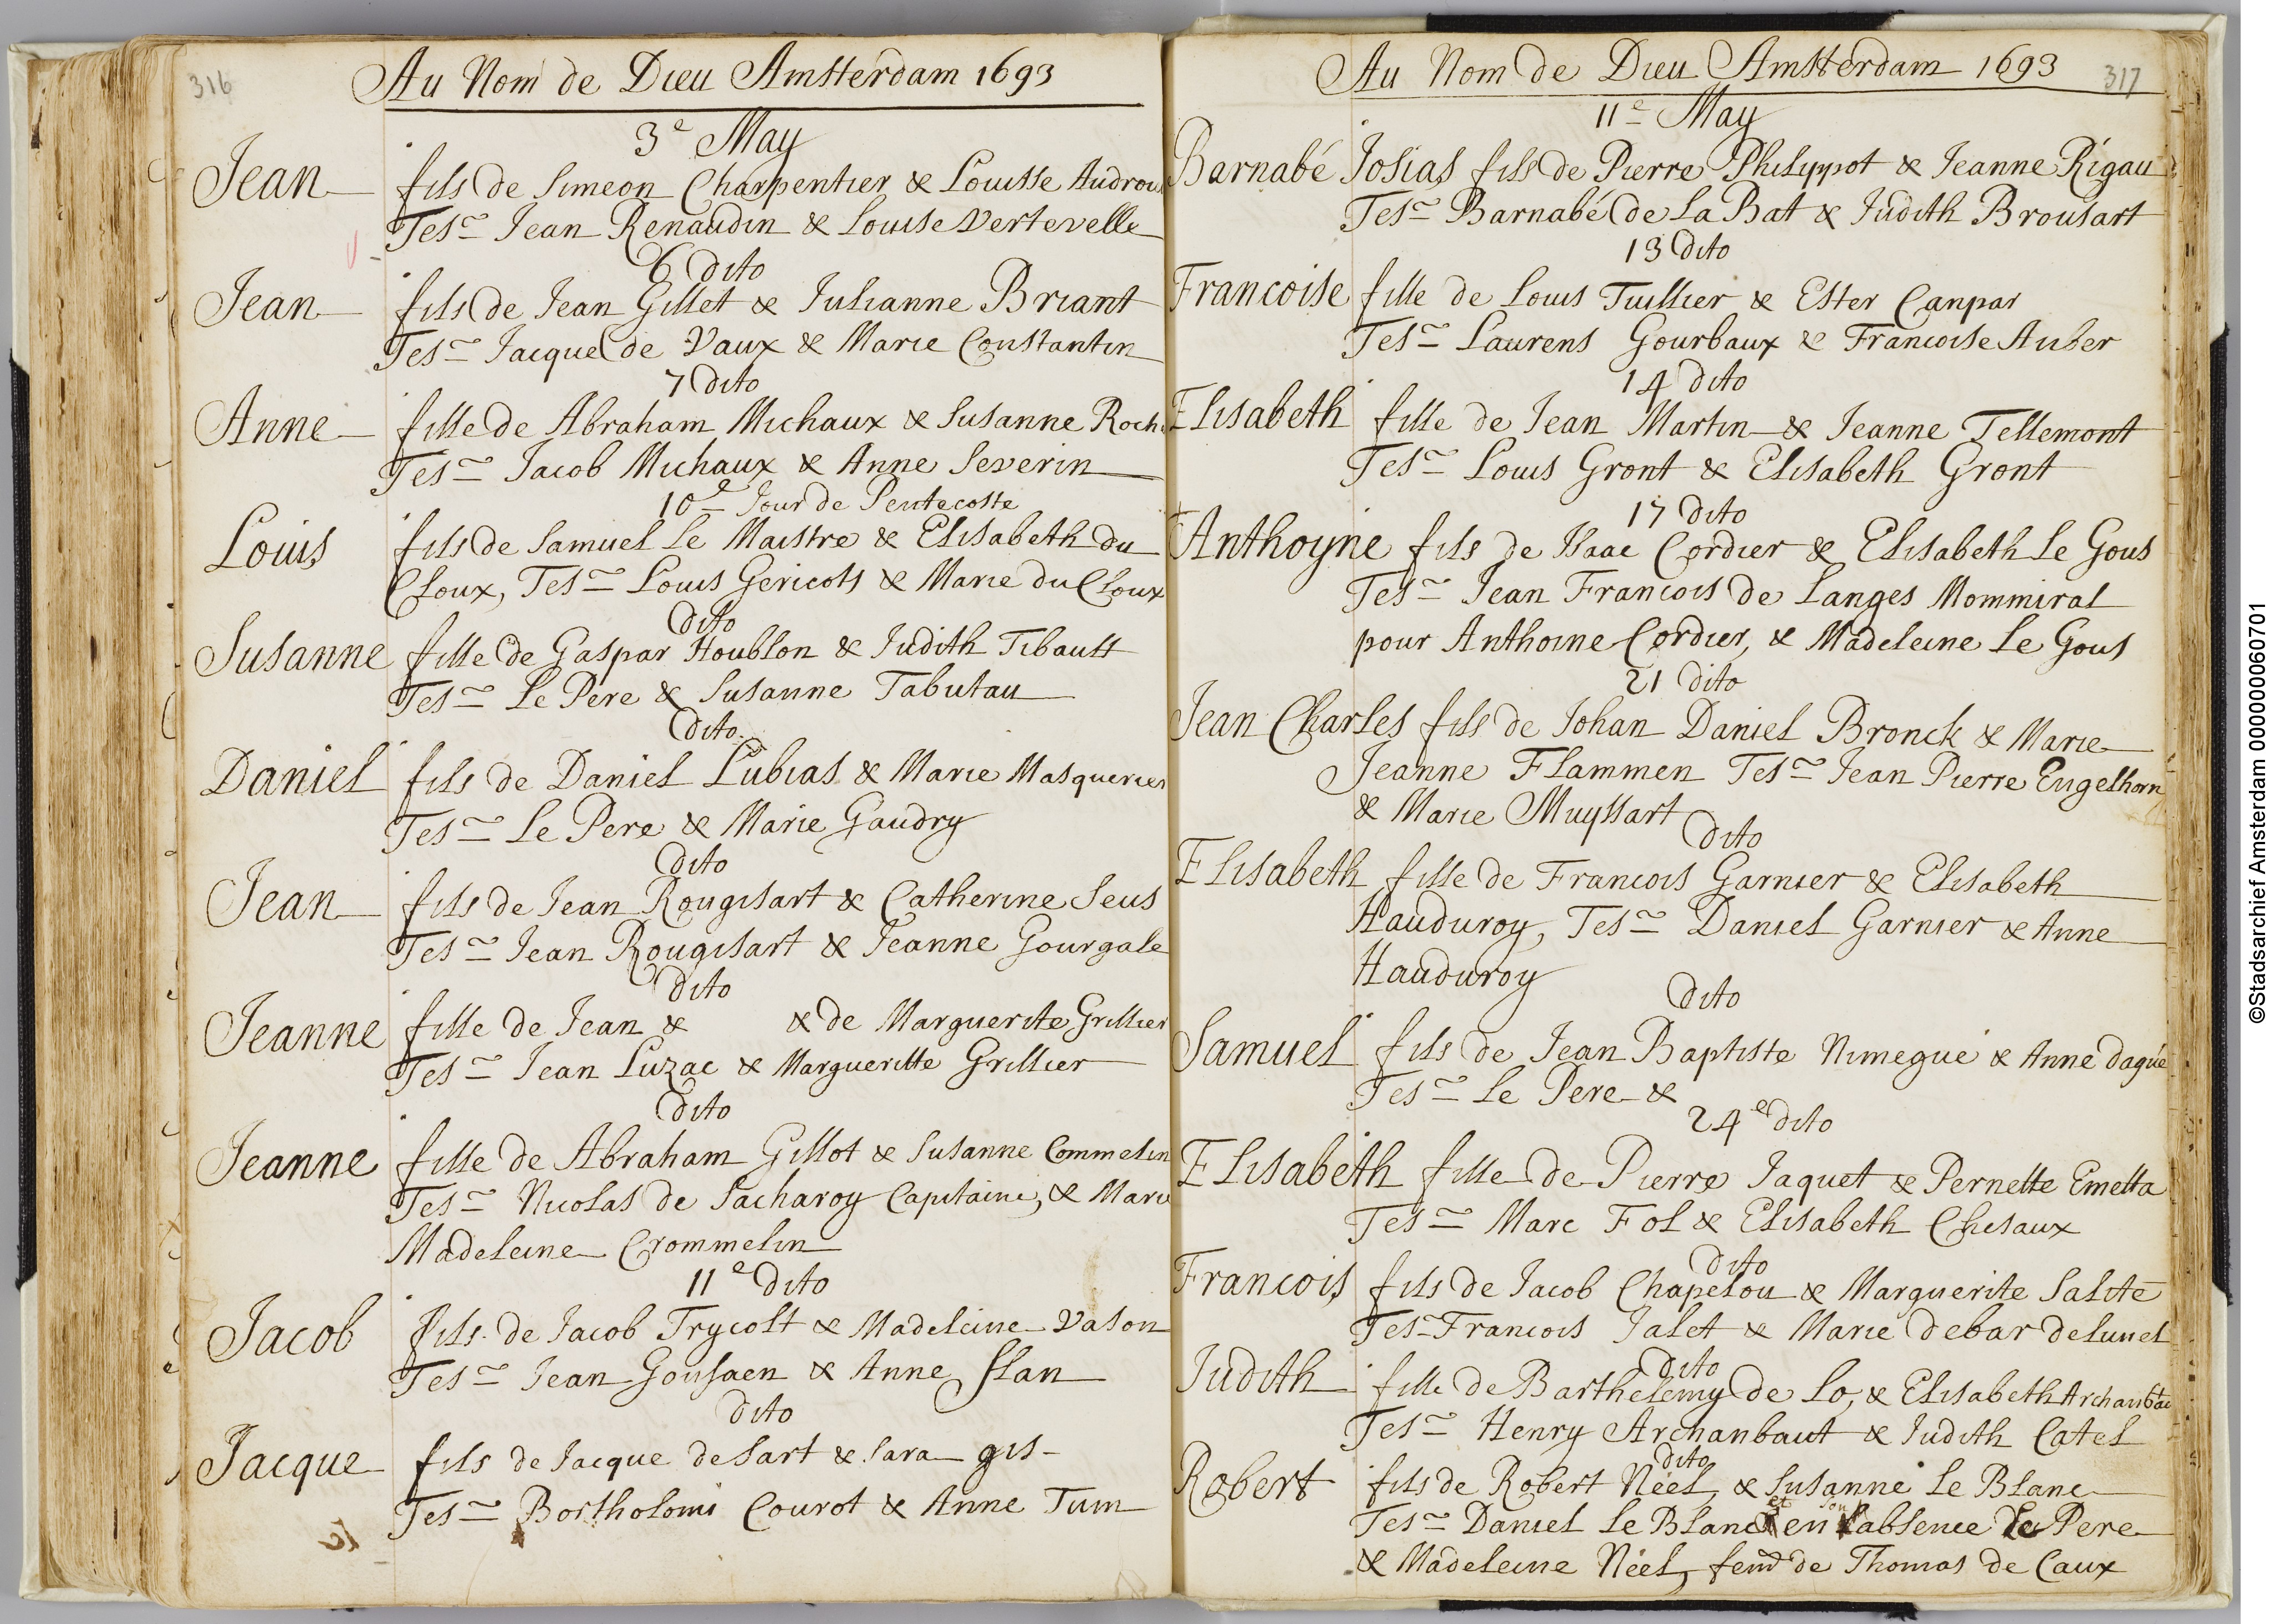 316
Au Nom de Dieu Amsterdam 1693
3e May
Jean fils de Simeon Charpentier & Louisse
Tes~ Jean Renaudin & Louise Vertevelle
6 dito
Jean fils de Jean Gillet & Julianne Briant
Tes~ Jacque de Vaux & Marie Constantin
7 dito
Anne fille de Abraham Michaux & Susanne
Tes~ Jacob Michaux & Anne Severin
10e Jour de Pentecoste
Louis fils de Samuel Le Maistre & Elisabeth du
Cloux, Tes~ Louis Gericots & Marie du Cloux
dito
Susanne fille de Gaspar Houblon & Judith Tibault
Tes~ Le Pere & Susanne Tabutau
dito
Daniel fils de Daniel Lubias & Marie Masquerier
Tes~ Le Pere & Marie Gaudry
dito
Jean fils de Jean Rougisart & Catherine Seus
Tes~ Jean Rougisart & Jeanne Gourgale
dito
Jeanne fille de Jean & & de Marguerite Grillier
Tes~ Jean Luzac & Margueritte Grillier
dito
Jeanne fille de Abraham Gillot & Susanne Commelin
Tes~ Nicolas de Sacharoy Capitaine, & Marie
Madeleine Crommelin
11e dito
Jacob fils de Jacob Trycolt & Madeleine Vason
Tes~ Jean Gousaen & Anne Slan
dito
Jacque fils de Jacque de Sart & Sara gis
Tes~ Bortholomi Courot & Anne Tum
317
Au Nom de Dieu Amsterdam 1693
11e May
Barnabé Josias fils de Pierre Philyppot & Jeanne Rigau
Tes~ Barnabé de La Bat & Judith Brousart
13 dito
Francoise fille de Louis Tuillier & Ester Canpar
Tes~ Laurens Gourbaux & Francoise Auber
14 dito
Elisabeth fille de Jean Martin & Jeanne Tellemont
Tes~ Louis Gront & Elisabeth Gront
17 dito
Anthoyne fils de Isaac Cordier & Elisabeth Le Gous
Tes~ Jean Francois de Langes Mommiral
pour Anthoine Cordier, & Madeleine Le Gous
21 dito
Jean Charles fils de Johan Daniel Bronck & Marie
Jeanne Flammen Tes~ Jean Pierre Engelhorn
& Marie Muyssart
dito
Elisabeth fille de Francois Garnier & Elisabeth
Hauduroy, Tes~ Daniel Garnier & Anne
Hauduroy
dito
Samuel fils de Jean Baptiste Nimegue & Anne dagué
Tes~ Le Pere &
24e dito
Elisabeth fille de Pierre Jaquet & Pernette Emetta
Tes~ Marc Fol & Elisabeth Chesaux
dito
Francois fils de Jacob Chapelou & Marguerite Salité
Tes~ Francois Jalet & Marie debar delunel
dito
Judith fille de Barthelemy de Lo, & Elisabeth
Tes~ Henry Archanbaut & Judith Catel
dito
Robert fils de Robert Néel, & Susanne Le Blanc
Tes~ Daniel Le Blanc en absence Le Pere
& Madeleine Néel, fem~ de Thomas de Caux
©Stadsarchief Amsterdam 000000060701